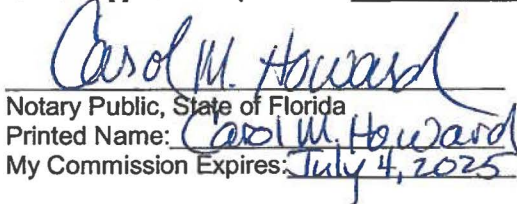 Carol M. Howard
Notary Public, State of Florida
Printed Name: Carol M. Howard
My Commission Expires: July 4, 2025